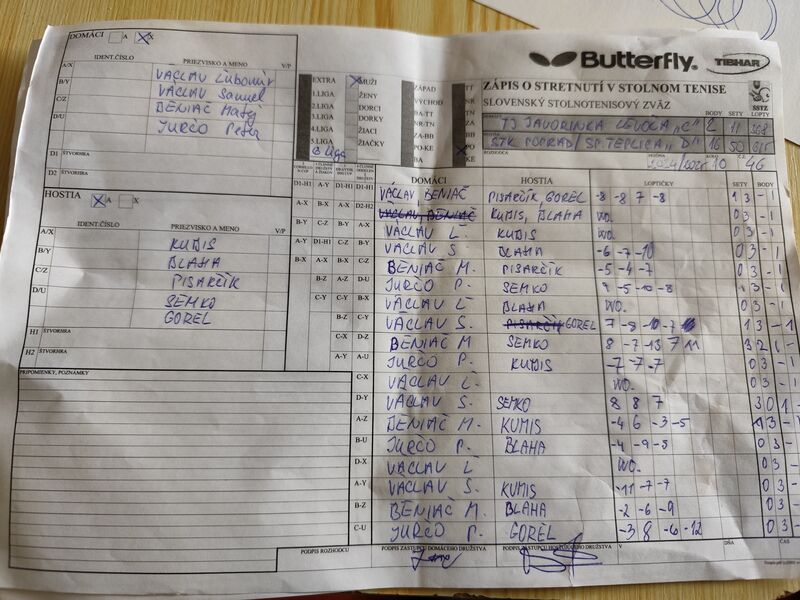 DOMÁCI A X
IDENT.ČÍSLO PRIEZVISKO A MENO V/P
A/X VÁCLAV Ľubomír
B/Y VÁCLAV Samuel
C/Z BENIAČ Matej
D/U JURČO Peter
D1 ŠTVORHRA
D2
HOSTIA A X
IDENT.ČÍSLO PRIEZVISKO A MENO V/P
A/X KUBIS
B/Y BLAHA
C/Z PISARČÍK
D/U SEMKO
GOREL
H1 ŠTVORHRA
H2
PRIPOMIENKY, POZNÁMKY
EXTRA MUŽI ZÁPAD TT
1.LIGA ŽENY VÝCHOD NR
2.LIGA DORCI BA-TT TN
3.LIGA DORKY NR-TN ZA
4.LIGA ŽIACI ZA-BB BB
5.LIGA ŽIAČKY PO-KE PO
6 liga BA KE
Butterfly TIBHAR
ZÁPIS O STRETNUTÍ V STOLNOM TENISE
SLOVENSKÝ STOLNOTENISOVÝ ZVÄZ
SSTZ
BODY SETY LOPTY
TJ JAVORINKA LEVOČA „C“ 2 11
STK POPRAD/SP.TEPLICA „D“ 16 50
ROZHODCA
10 4G
DOMÁCI HOSTIA LOPTIČKY SETY BODY
D1-H1 VÁCLAV, BENIAČ PISARČÍK, GOREL -8 -8 7 -8 1 3 - 1
D2-H2 VÁCLAV, BENIAČ KUBIS, BLAHA WO. 0 3 - 1
A-X VÁCLAV Ľ. KUBIS WO. 0 3 - 1
B-Y VÁCLAV S. BLAHA -6 -7 -10 0 3 - 1
C-Z BENIAČ M. PISARČÍK -5 -4 -7 0 3 - 1
D-U JURČO P. SEMKO -5 -10 -8 0 3 - 1
VÁCLAV Ľ. BLAHA WO. 0 3 - 1
VÁCLAV S. PISARČÍK GOREL 7 -8 -10 -7 1 3 - 1
BENIAČ M SEMKO 8 -7 -13 7 11 3 2 1 -
A-U JURČO P. KUBIS -7 -7 -7 0 3 - 1
C-X VÁCLAV Ľ. WO. 0 3 -
D-Y VÁCLAV S. SEMKO 8 8 7 3 0 1 -
A-Z BENIAČ M. KUMIS -4 6 -3 -5 1 3 -
B-U JURČO P. BLAHA -4 -9 -8 0 3 -
D-X VÁCLAV Ľ WO. 0 3 -
A-Y VÁCLAV S. KUMIS -11 -7 -7 0 3 -
B-Z BENIAČ M. BLAHA -2 -6 -9 0 3 -
C-U JURČO P. GOREL -3 8 -6 -12
PODPIS ROZHODCU PODPIS ZÁSTUPCU DOMÁCEHO DRUŽSTVA PODPIS ZÁSTUPCU HOSŤUJÚCEHO DRUŽSTVA V DŇA ČAS